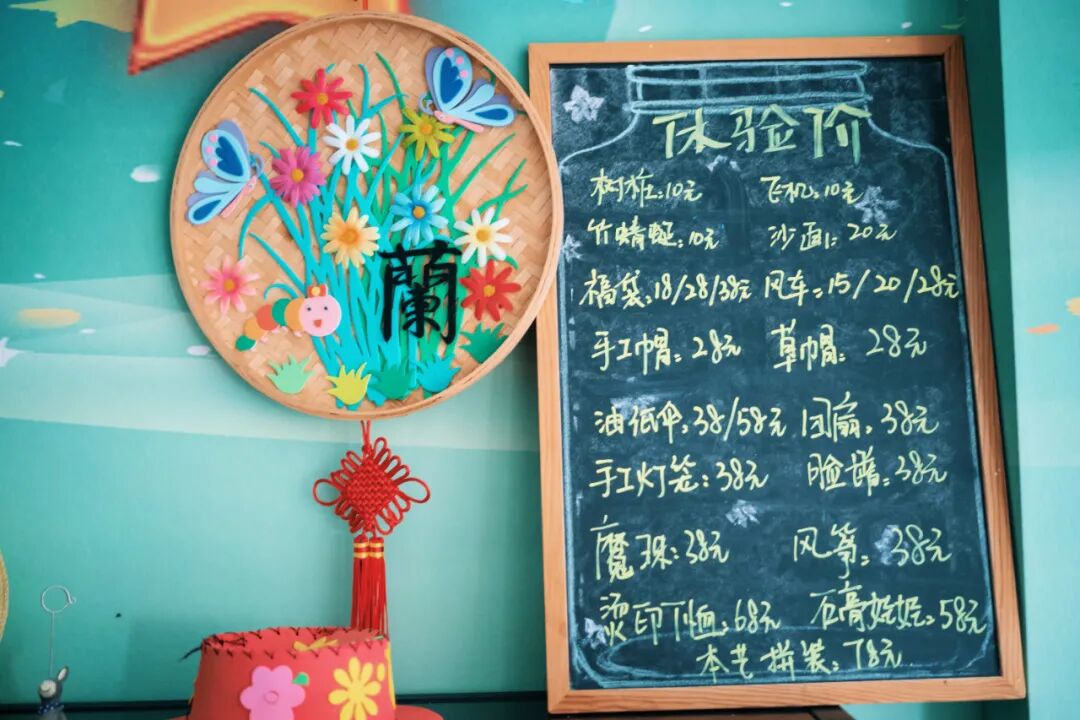 蘭
体验价
树桩:10元 飞机:10元
竹蜻蜓:10元 沙画:20元
福袋:18/28/38元 风车:15/20/28元
手工帽:28元 草帽:28元
油纸伞:38/58元 团扇:38元
手工灯笼:38元 脸谱:38元
魔珠:38元 风筝:38元
烫印T恤:68元 石膏娃娃:58元
木艺拼装:78元